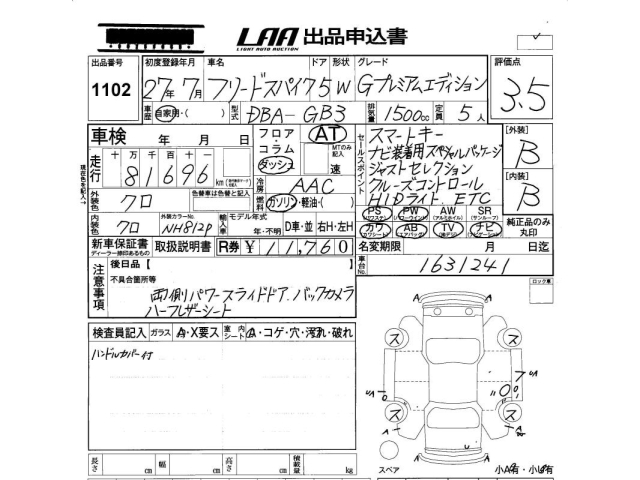 LAA 出品申込書
LIGHT AUTO AUCTION
出品番号 初度登録年月 車名 ドア 形状 グレード 評価点
1102 27年 7月 フリードスパイク 5 W Gプレミアムエディション 3.5
車歴 自家用・( ) 型式 DBA-GB3 排気量 1500cc 定員 5人
車検 年 月 日 フロア・コラム・ダッシュ AT MTのみ記入 速
セールスポイント スマートキー
ナビ装着用スペシャルパッケージ
ジャストセレクション
クルーズコントロール
HIDライト. ETC
【外装】 B
【内装】 B
走行 十 万 千 百 十 一
81696 km
冷房 AAC
外装色 クロ 色替車は色替と記入 燃料 ガソリン・軽油・( )
PS PW AW SR
カワ AB TV ナビ 純正品のみ丸印
内装色 クロ 外装カラーNo. NH812P 輸入車 モデル年式 年・不明 D車・並 右H・左H
新車保証書 取扱説明書 R券 ¥11,760 名変期限 月 日迄
ディーラー捺印あるもの
注意事項 後日品【 】 車台No. 1631241
不具合箇所等
両側パワースライドドア. バックカメラ
ハーフレザーシート
ロック車
検査員記入 ガラス A・X要ス 室内シート A・コゲ・穴・汚れ・破れ
ハンドルカバー付
ス ス
ス ス
A A
スペア 小A有・小U有
長さ cm 幅 cm 高さ cm 積載量 kg